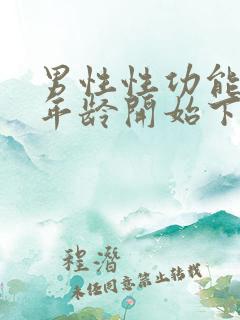 男性性功能
年龄開始下
程潛
未任同意禁止转载